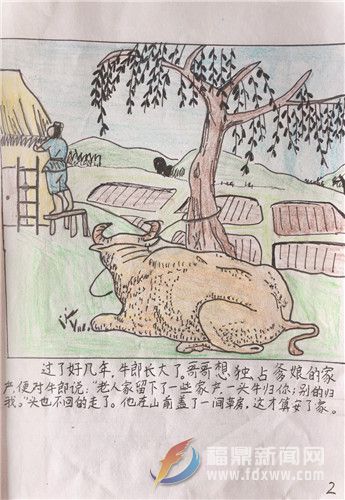 过了好几年,牛郎长大了,哥哥想独占爹娘的家
产,便对牛郎说:"老人家留下了一些家产,一头牛归你;别的归
我。"头也不回的走了。他在山前盖了一间茅房,这才算安了家。
福鼎新闻网
www.fdxww.com
2